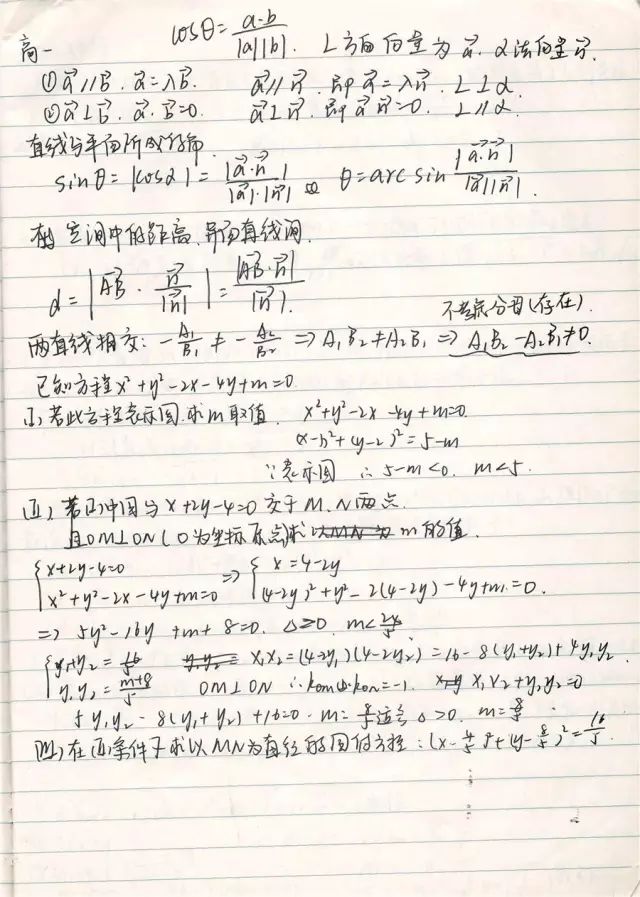 cosθ = a·b / |a||b| . L方向向量为 a⃗. α法向量 n⃗.
高一
① a⃗∥b⃗. a⃗=λb⃗. a⃗∥n⃗. 即 a⃗=λn⃗. L⊥α.
② a⃗⊥b⃗. a⃗·b⃗=0. a⃗⊥n⃗. 即 a⃗·n⃗=0. L∥α.
直线与平面所成的角.
sinθ = |cosα| = |a⃗·n⃗| / |a⃗|·|n⃗| θ = arc sin |a⃗·n⃗| / |a⃗||n⃗| .
空间中的距离, 异面直线间.
d = | AB⃗ · n⃗ / |n⃗| | = |AB⃗·n⃗| / |n⃗| .
不考虑分母(存在).
两直线相交: - A₁/B₁ ≠ - A₂/B₂ ⇒ A₁B₂≠A₂B₁ ⇒ A₁B₂-A₂B₁≠0.
已知方程 x²+y²-2x-4y+m=0
(I) 若此方程表示圆, 求m取值. x²+y²-2x-4y+m=0.
(x-1)²+(y-2)²=5-m
∵表示圆 ∴5-m<0. m<5.
(II) 若(I)中圆与 x+2y-4=0 交于 M.N 两点.
且OM⊥ON (O为坐标原点)求 以MN为 m的值.
{ x+2y-4=0 ⇒ { x=4-2y
x²+y²-2x-4y+m=0 (4-2y)²+y²-2(4-2y)-4y+m=0.
⇒ 5y²-16y+m+8=0. Δ>0. m<24/5
{ y₁+y₂=16/5 y₁y₂= x₁x₂=(4-2y₁)(4-2y₂)=16-8(y₁+y₂)+4y₁y₂
y₁y₂=m+8/5 OM⊥ON ∴kom·kon=-1. x₁x₂+y₁y₂=0
5y₁y₂-8(y₁+y₂)+16=0. m=8/5 Δ>0. m=8/5.
(III) 在(II)条件下求以MN为直径的圆的方程: (x-4/5)²+(y-8/5)²=16/5.